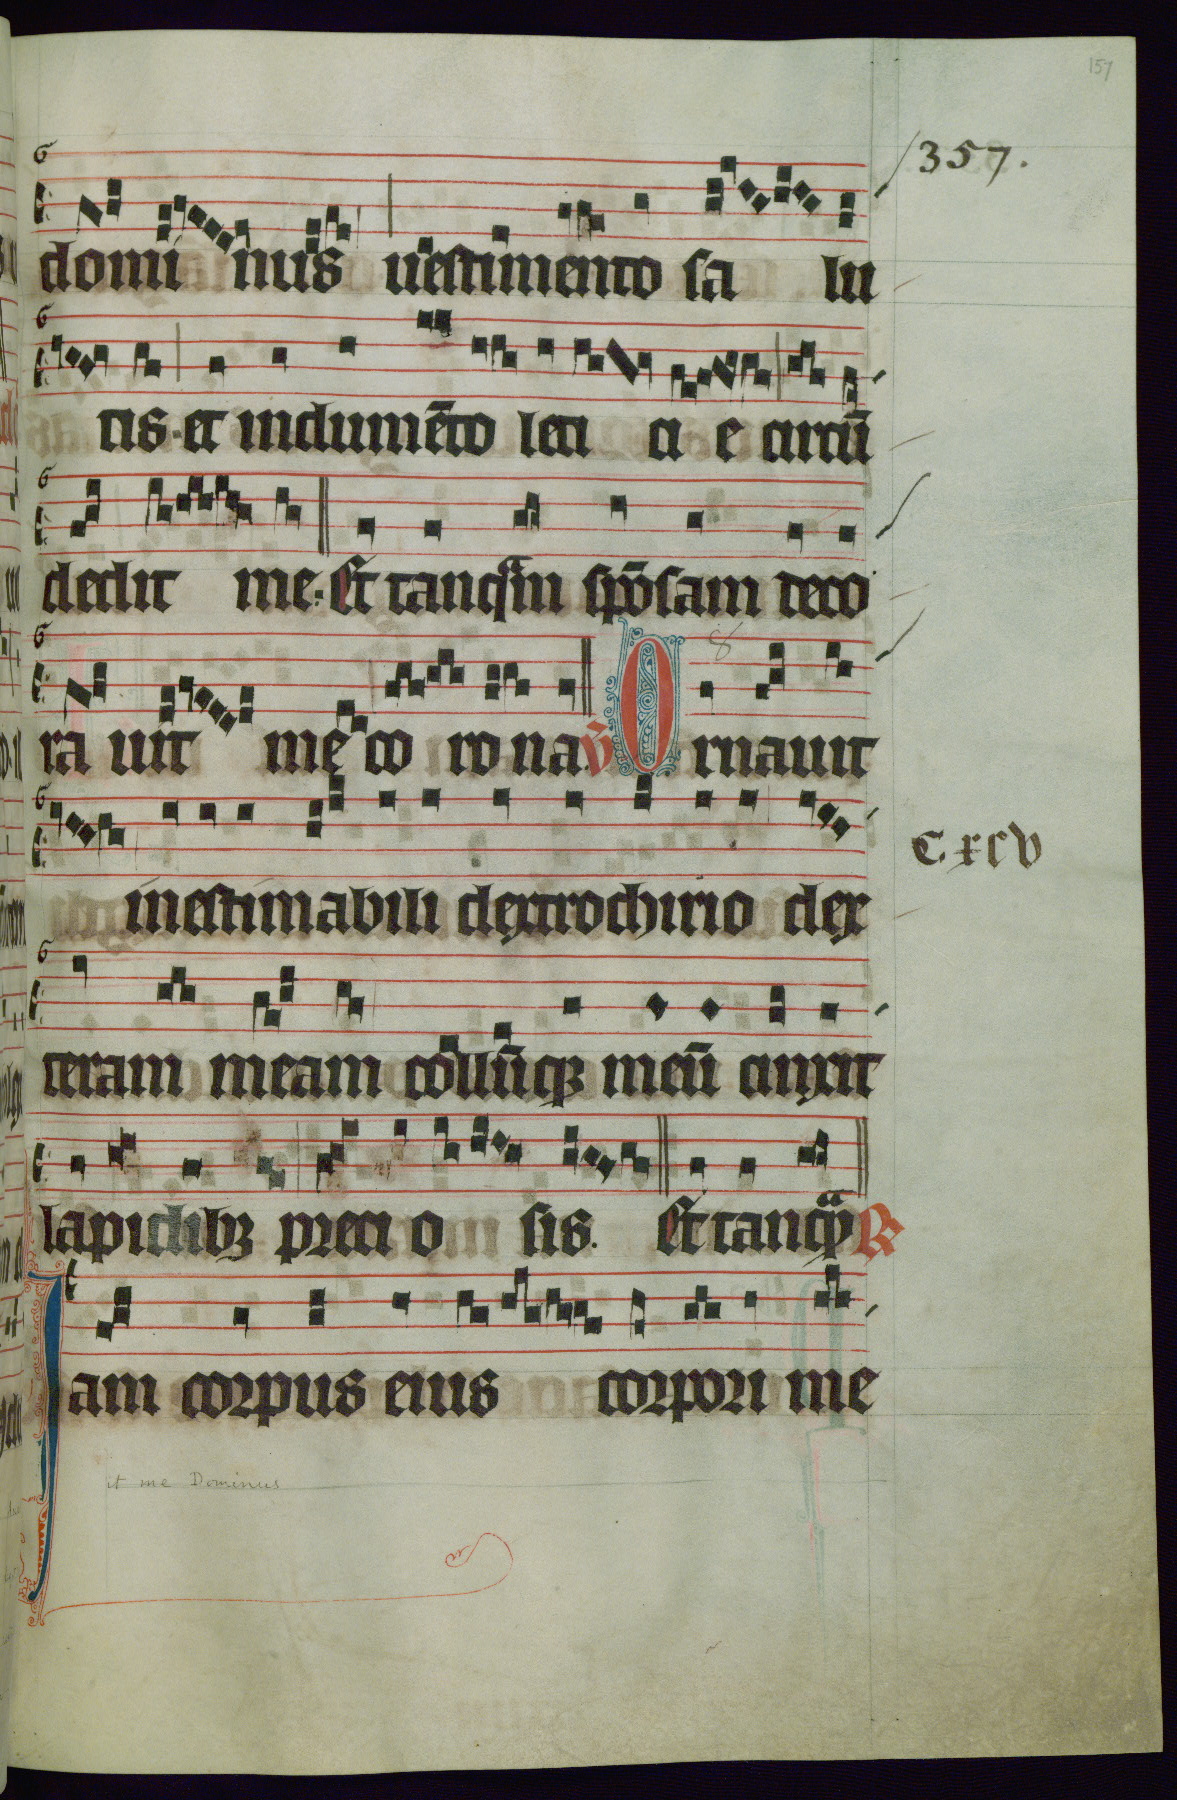 157
357.
domi nus uestimento sa lu
tis et indumēto leti ci e circū
dedit me. Et tanqᷓm spōsam deco
ra uit me co ro na. V̄ Ornauit
C. xcv
inestimabili dextrochirio dex
teram meam collūqꝫ meū cinxit
lapidibꝫ preci o sis. Et tanqᷓ R
Iam corpus eius corpori me
it me Dominus